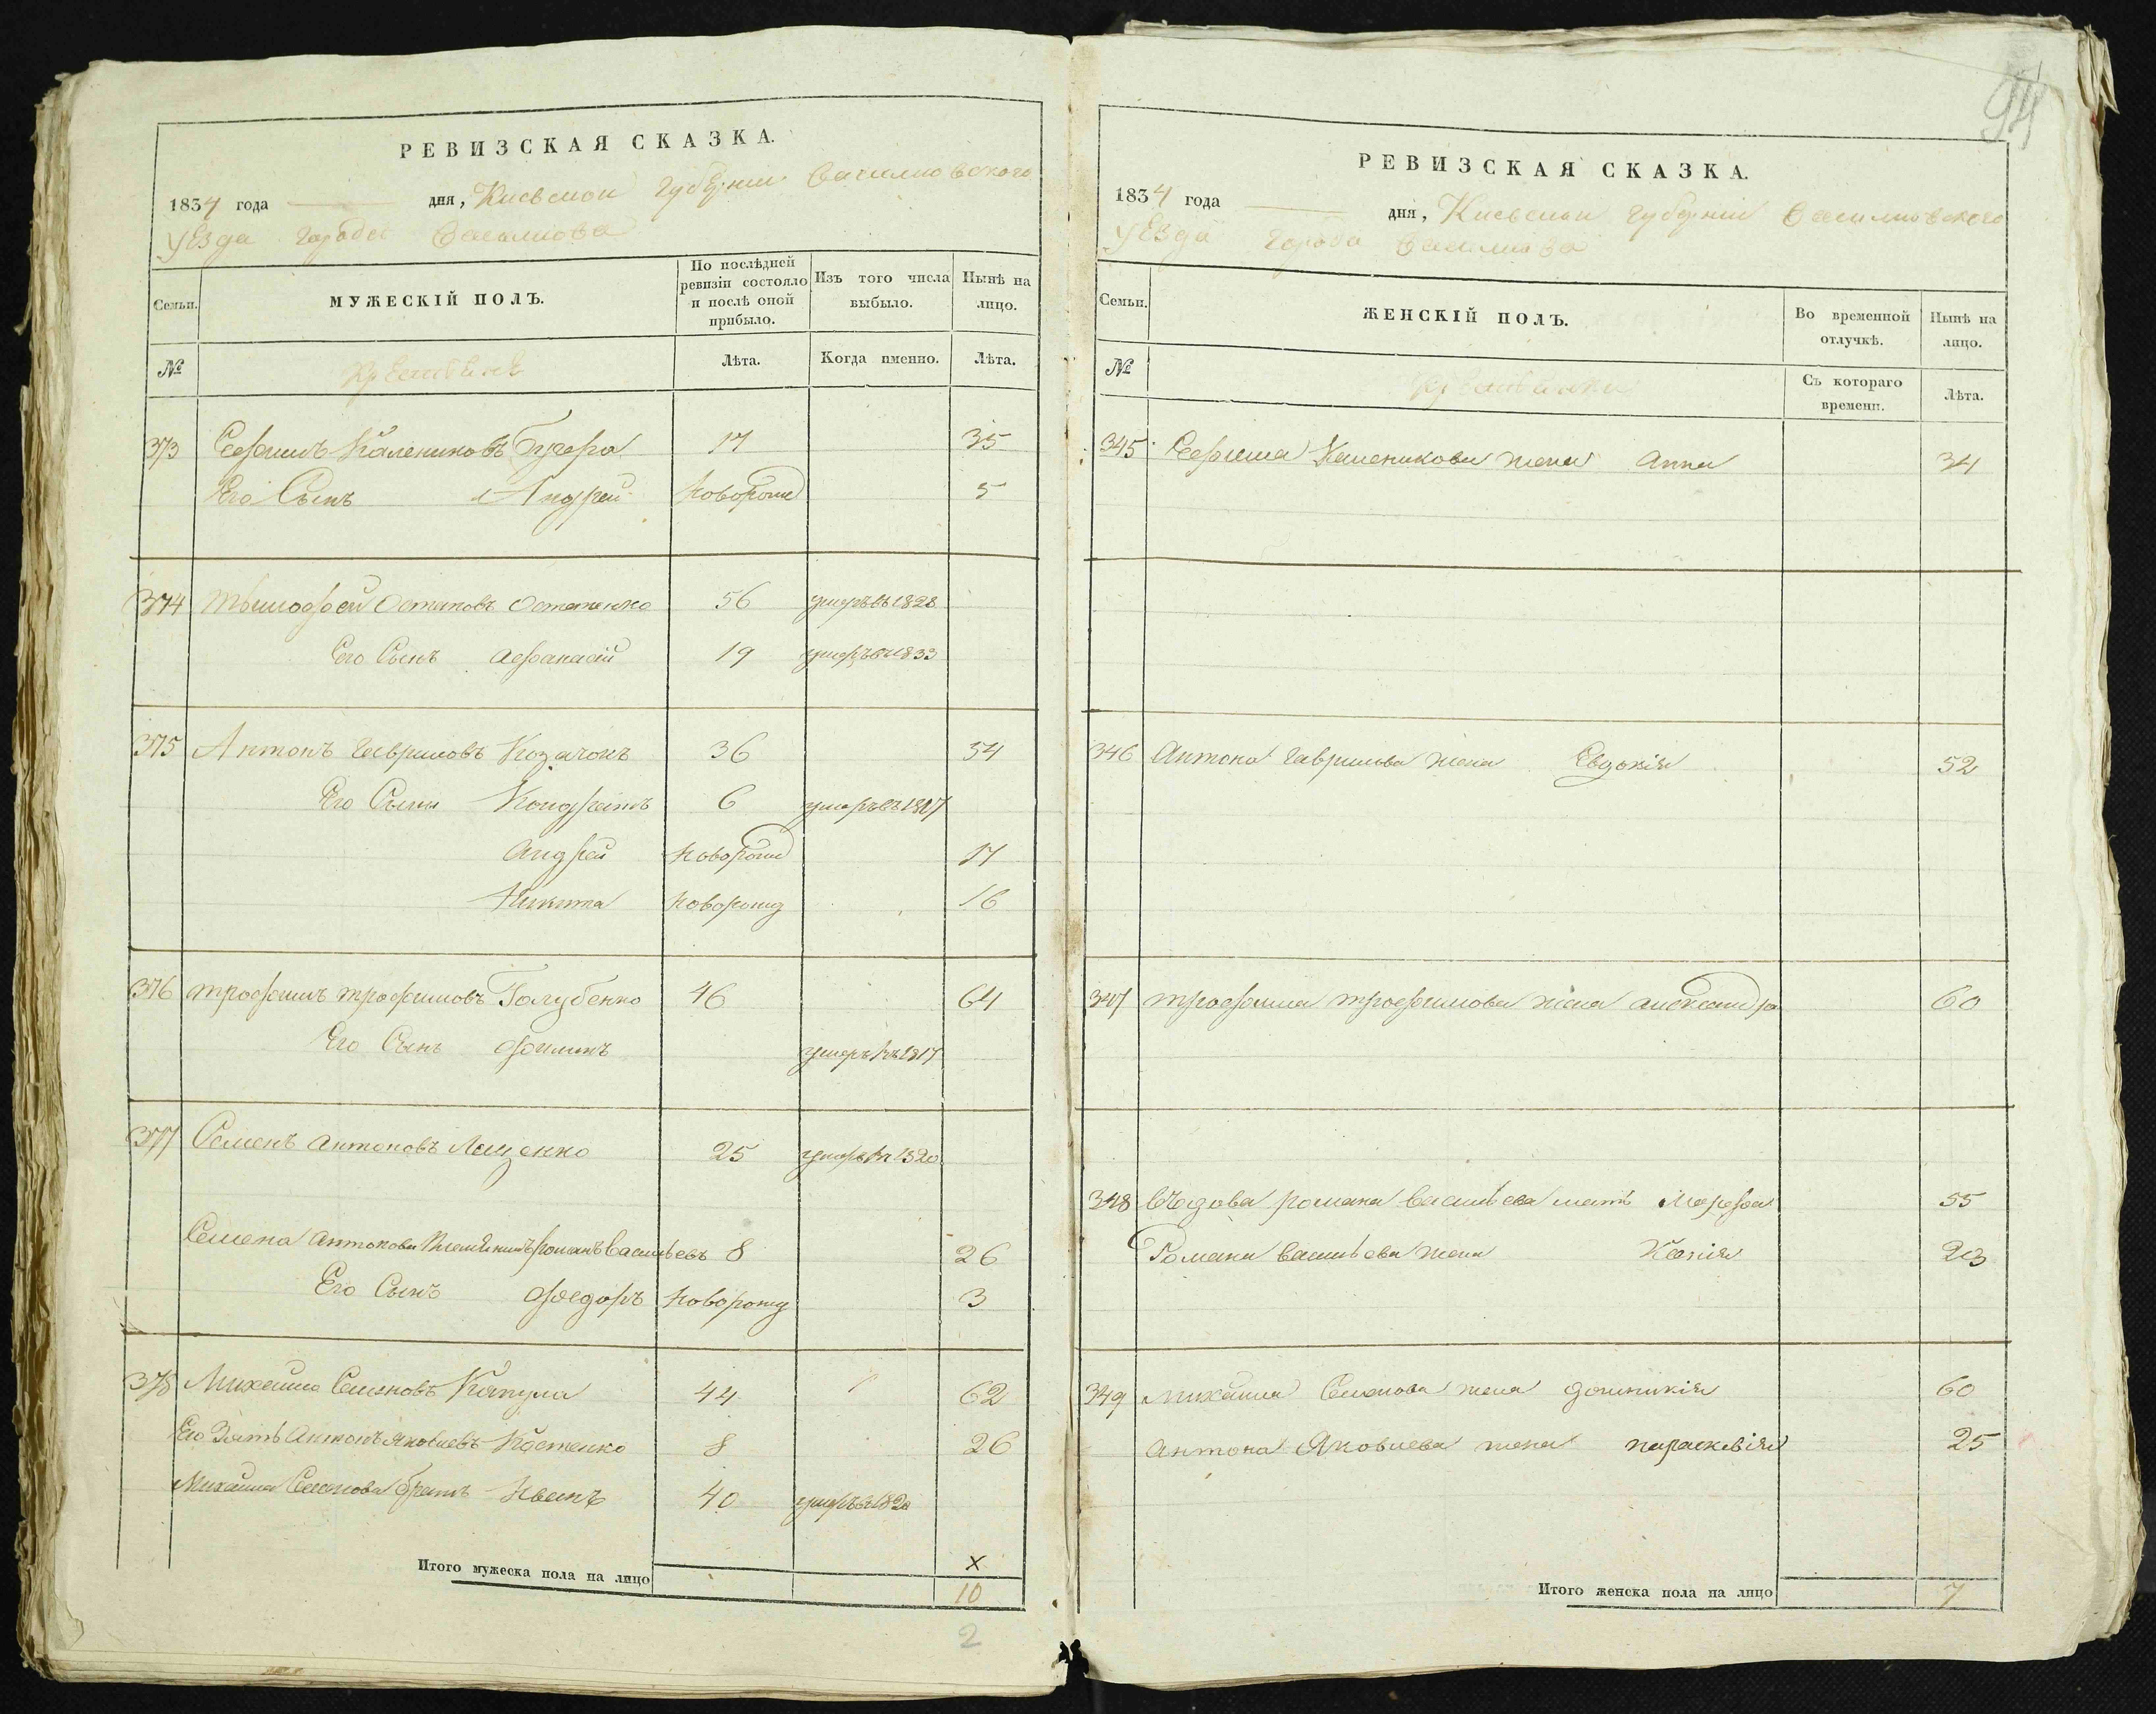 РЕВИЗСКАЯ СКАЗКА.
1834 года дня, Киевской губернии Васильковского
уезда города Василькова
Семьи.
МУЖЕСКІЙ ПОЛЪ.
По послѣдней ревизіи состояло и послѣ оной прибыло.
Изъ того числа выбыло.
Нынѣ на лицо.
№
Лѣта.
Когда именно.
Лѣта.
373 Ефимъ Калениковъ 17 35
Его Сынъ Андрей новорожд 5
374 Тымофей Остаповъ Остапенко 56 умеръ въ 1828
Его Сынъ Афанасий 19 умеръ въ 1833
375 Антонъ Гавриловъ Козачокъ 36 54
Его Сыны Кондратъ 6 умеръ въ 1817
Андрей новорожд 17
Никита новорожд 16
376 Трофимъ Трофимовъ Голубенко 46 64
Его Сынъ Филипъ умеръ въ 1817
377 Семенъ Антоновъ Лященко 25 умеръ въ 1820
Семена Антонова племянникъ Романъ Васильевъ 8 26
Его Сынъ Федоръ новорожд 3
378 Михайло Семеновъ 44 62
Его Зять Антонъ Яковлевъ Костенко 8 26
Михайла Семенова братъ Иванъ 40 умеръ въ 1820
Итого мужеска пола на лицо
х
10
2
94
РЕВИЗСКАЯ СКАЗКА.
1834 года дня, Киевской губернии Васильковского
уезда города Василькова
Семьи.
ЖЕНСКІЙ ПОЛЪ.
Во временной отлучкѣ.
Нынѣ на лицо.
№
Съ котораго времени.
Лѣта.
345 Ефима Каленикова жена Анна 34
346 Антона Гаврилова жена Евдокія 52
347 Трофима Трофимова жена Александра 60
348 Въдова Романа Васильева мать 55
Романа Васильева жена Ксенія 23
349 Михайла Семенова жена Домникія 60
Антона Яковлева жена Параскевія 25
Итого женска пола на лицо 7